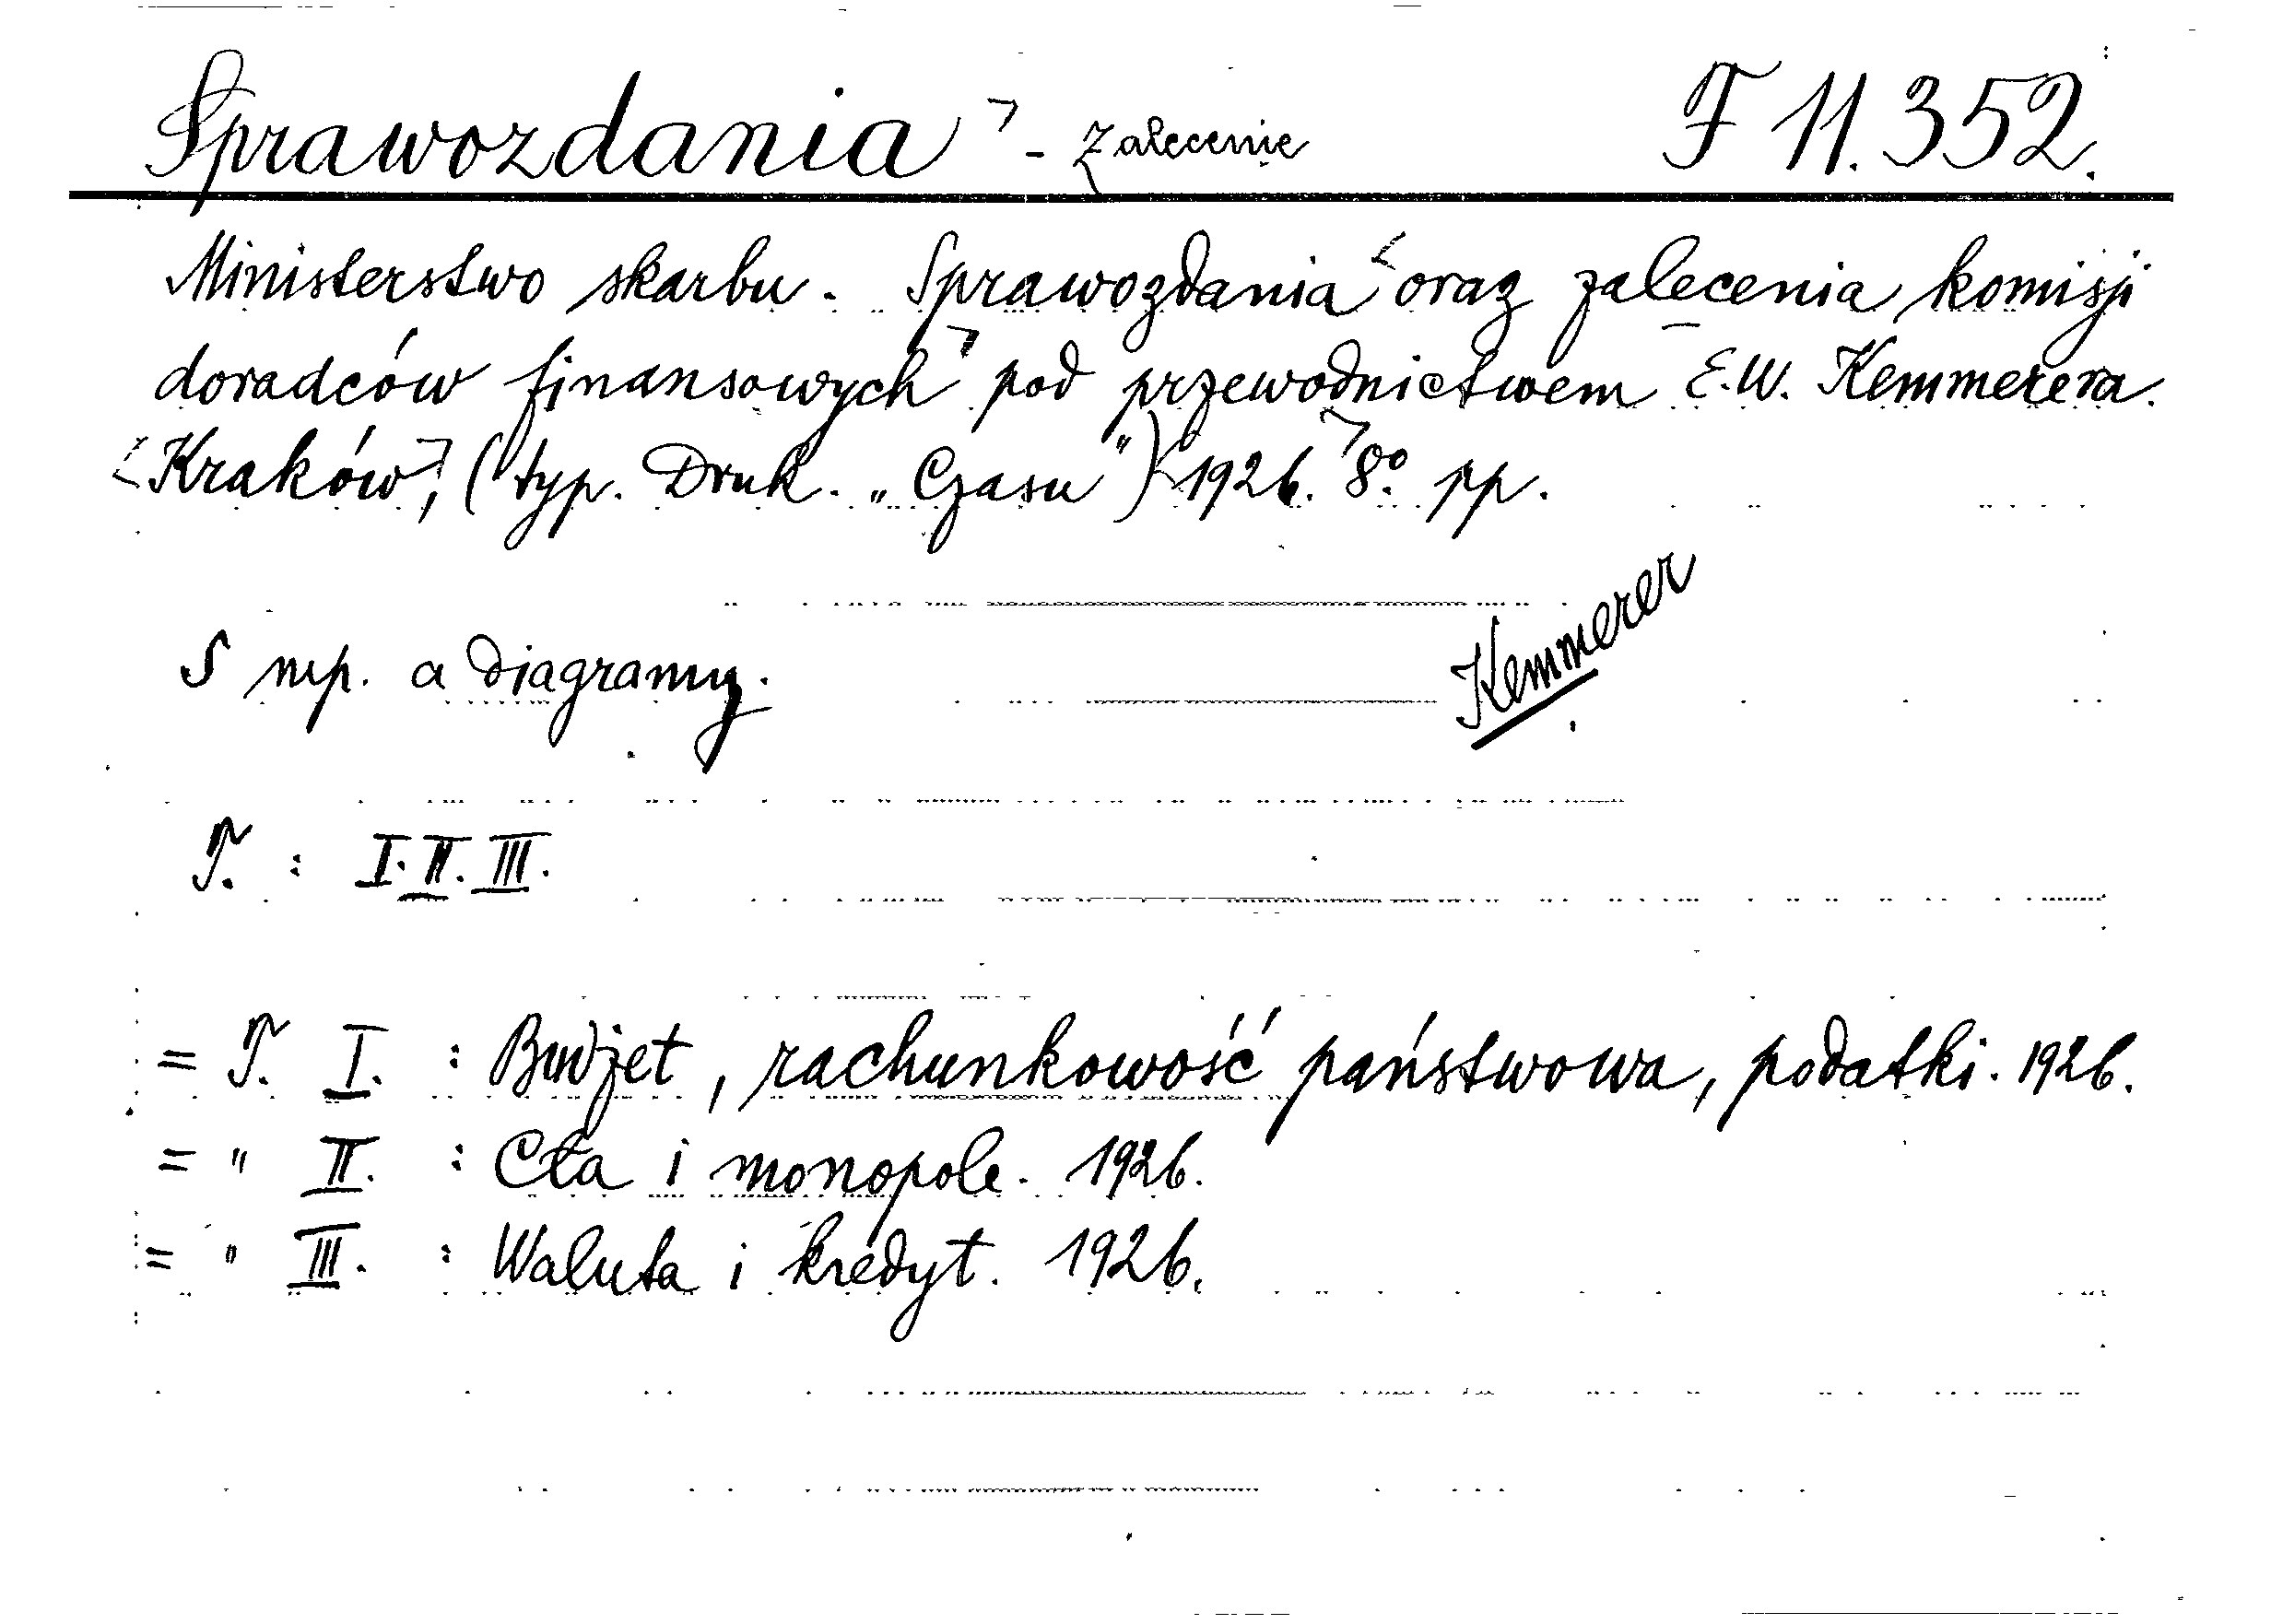 Sprawozdania - zalecenie F 11.352.
Ministerstwo skarbu. Sprawozdania oraz zalecenia komisji
doradców finansowych pod przewodnictwem E.W. Kemmerera.
Kraków, (typ. Druk. „Czasu") 1926. 8º. pp.
Kemmerer
S mp. a diagramy.
T. : I. II. III.
= T. I. : Budżet, rachunkowość państwowa, podatki. 1926.
= " II. : Cła i monopole. 1926.
= " III. : Waluta i kredyt. 1926.